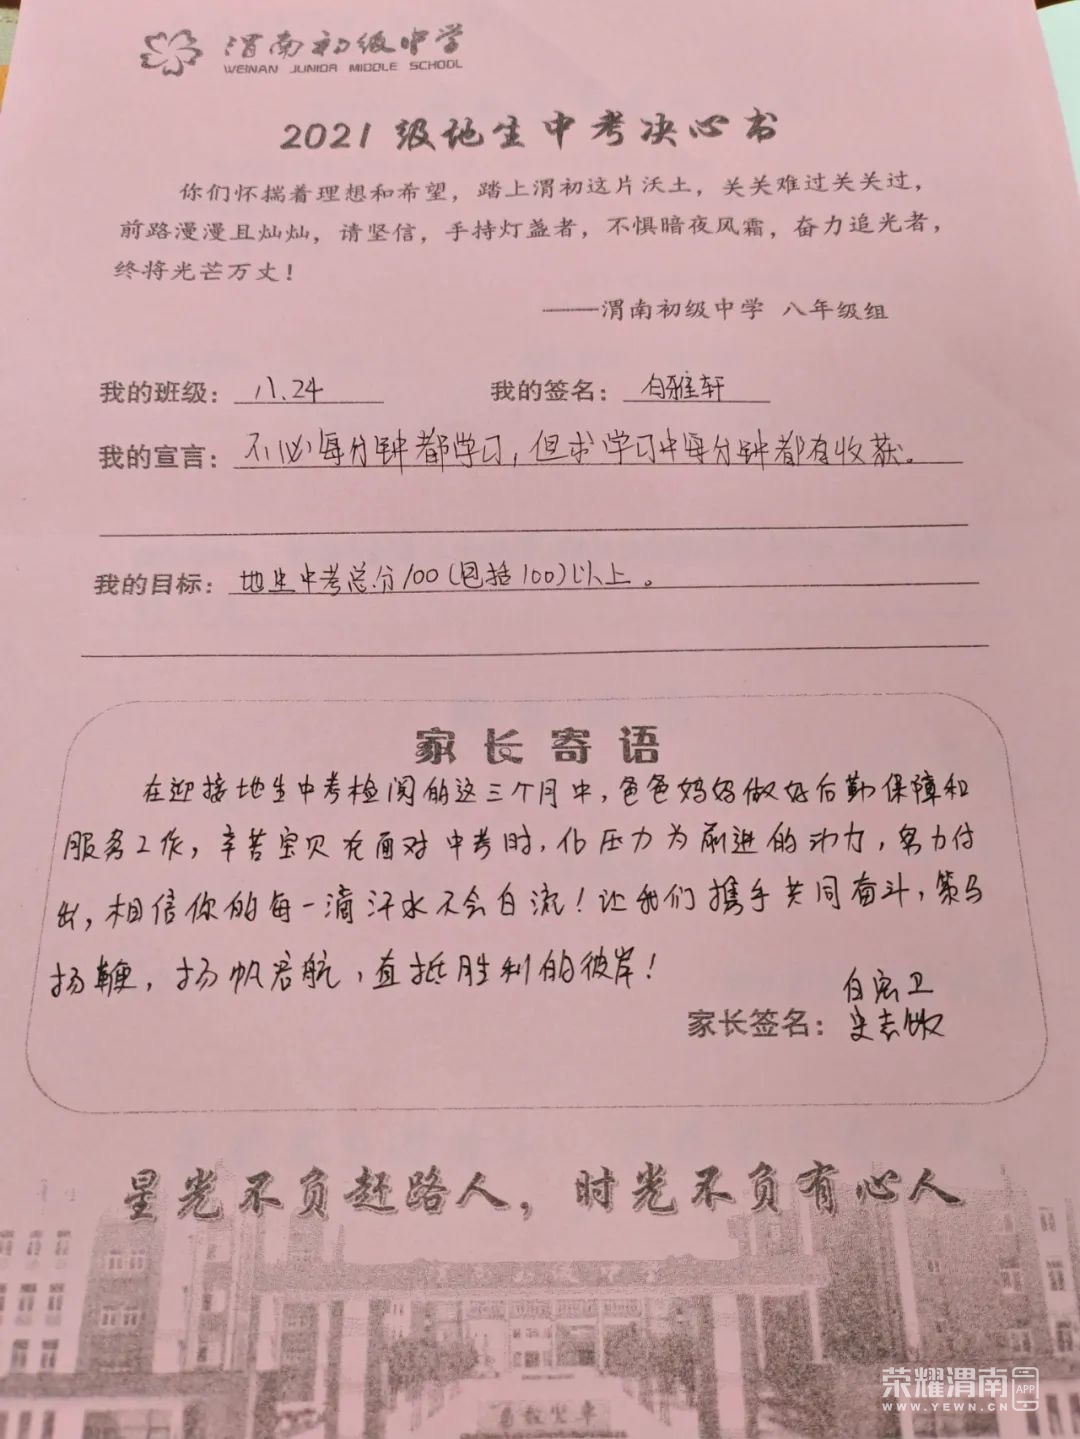 渭南初级中学
WEINAN JUNIOR MIDDLE SCHOOL
2021级地生中考决心书
你们怀揣着理想和希望，踏上渭初这片沃土，关关难过关关过，
前路漫漫且灿灿，请坚信，手持灯盏者，不惧暗夜风霜，奋力追光者，
终将光芒万丈！
——渭南初级中学 八年级组
我的班级：八.24 我的签名：白雅轩
我的宣言：不必每分钟都学习，但求学习中每分钟都有收获。
我的目标：地生中考总分100（包括100）以上。
家长寄语
在迎接地生中考检阅的这三个月中，爸爸妈妈做好后勤保障和
服务工作，辛苦宝贝在面对中考时，化压力为前进的动力，努力付
出，相信你的每一滴汗水不会白流！让我们携手共同奋斗，策马
扬鞭，扬帆启航，直抵胜利的彼岸！
白宏卫
家长签名：
星光不负赶路人，时光不负有心人
荣耀渭南APP
WWW.YEWN.CN